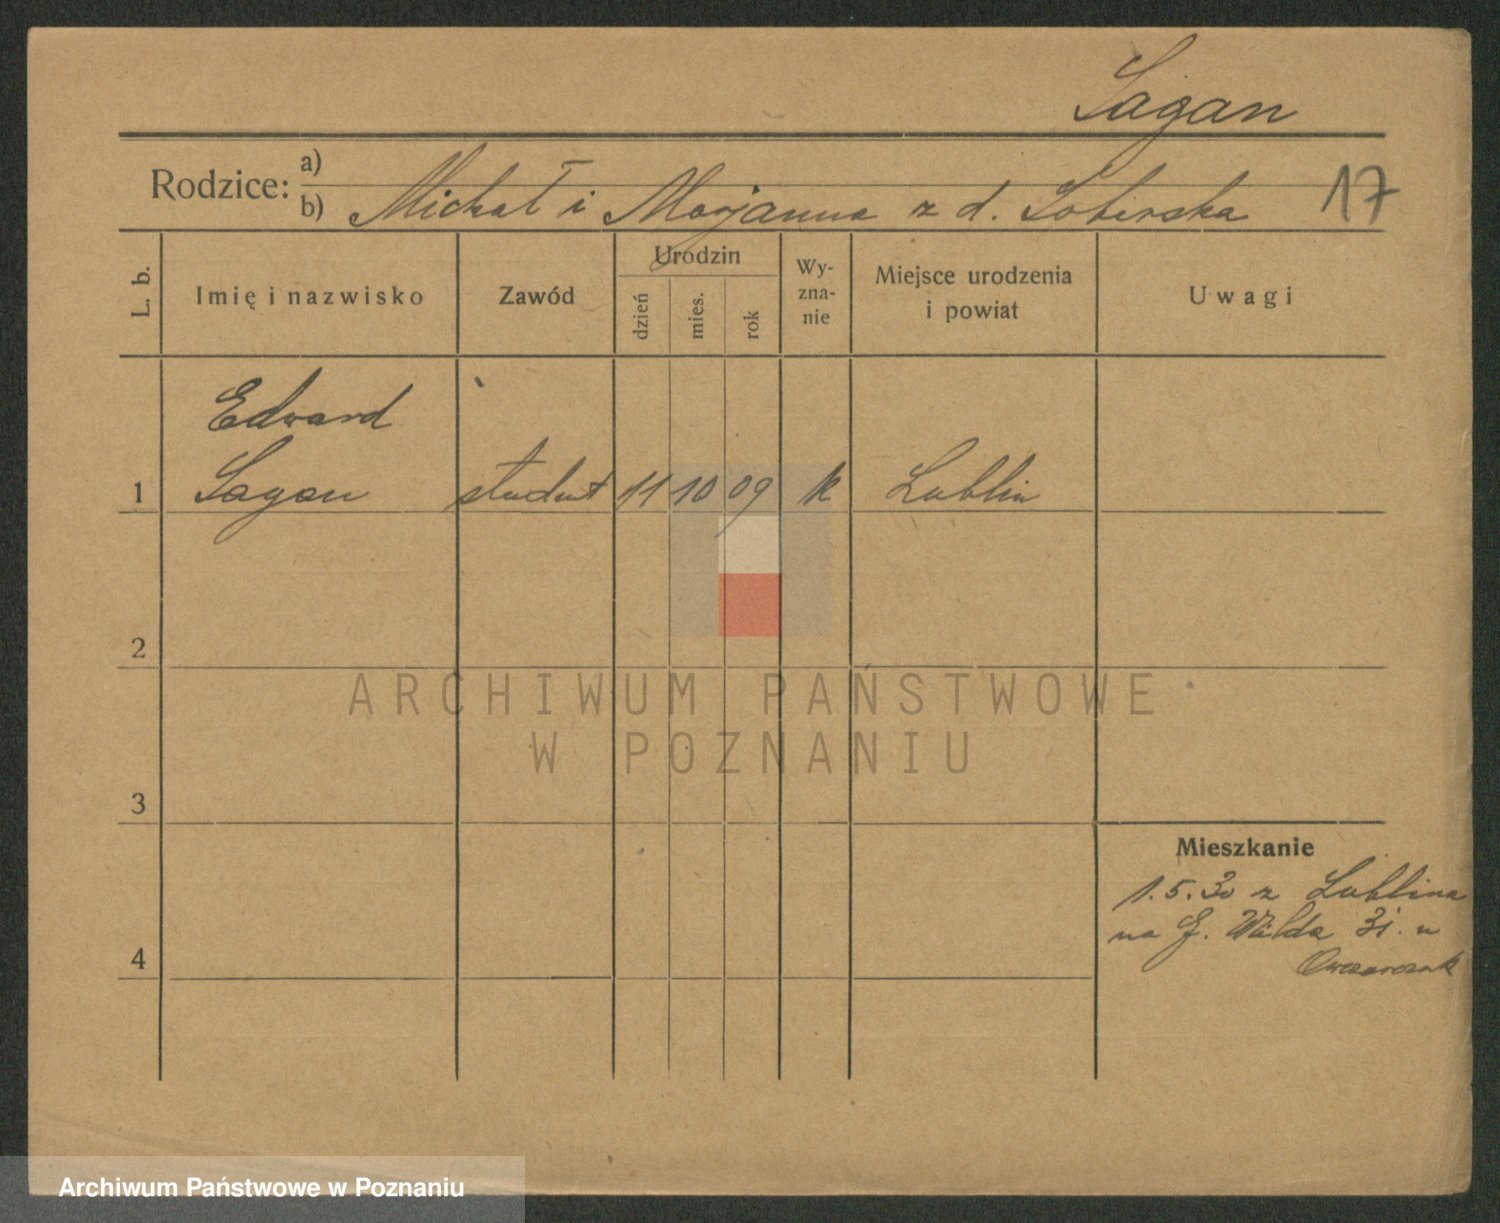 Sagan
Rodzice: a)
b) Michał i Marjanna z d. Sobirska
17
L. b.
Imię i nazwisko
Zawód
Urodzin
dzień
mies.
rok
Wy-
zna-
nie
Miejsce urodzenia
i powiat
Uwagi
Edward
1 Sagan student 11 10 09 k Lublin
2
ARCHIWUM PAŃSTWOWE
W POZNANIU
3
Mieszkanie
1.5.30 z Lublina
na G. Wilda 31. u
Owczarczak
4
Archiwum Państwowe w Poznaniu